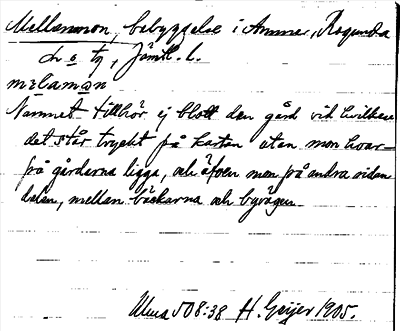 Mellanmon, bebyggelse i Ammer, Ragunda
sn o tg, Jämtl. l.
Namnet tillhör ej blott den gård vid hvilken
det står tryckt på kartan utan mon hvar-
på gårdarna ligga, och äfven mon på andra sidan
dalen, mellan bäckarna och byvägen.
Uma 508:38 H. Geijer 1905.